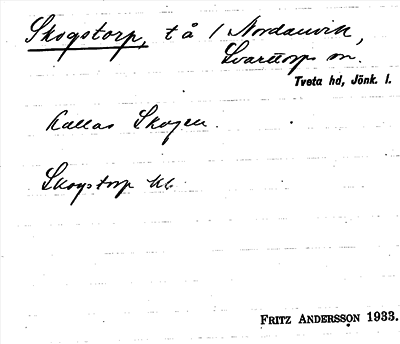 Skogstorp, t å / Nordanvik,
Svarttorps sn.
Tveta hd, Jönk. l.
Kallas Skogen.
Skogstorp Kb
FRITZ ANDERSSON 1933.